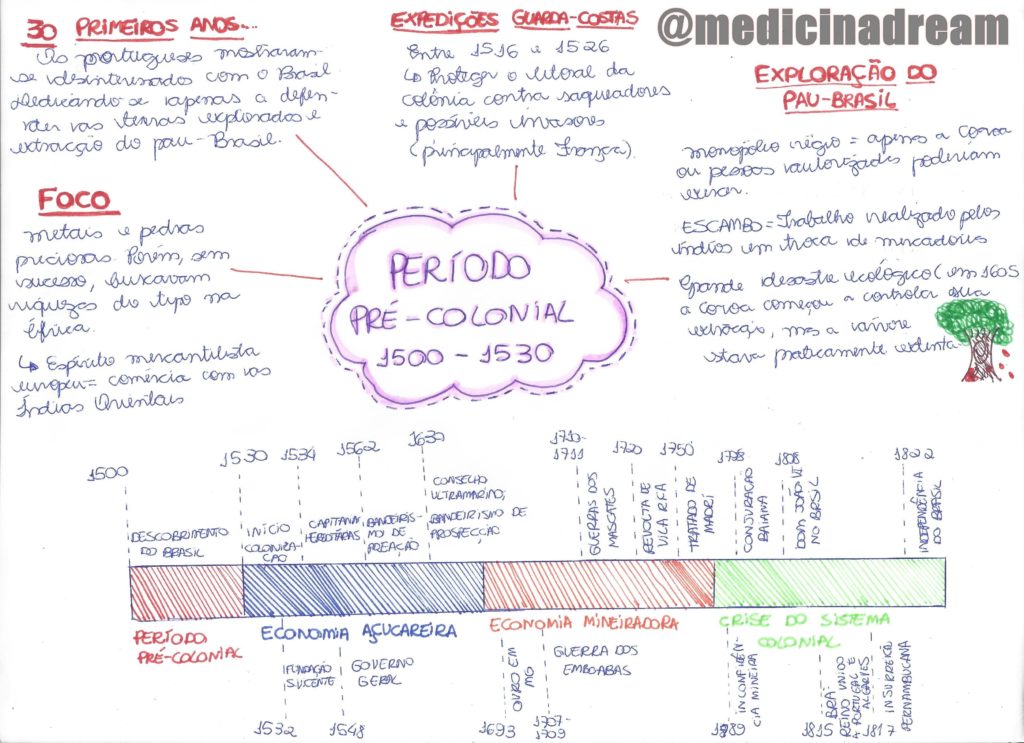 @medicinadream
30 PRIMEIROS ANOS...
Os portugueses mostraram-
se desinteressados com o Brasil
dedicando-se apenas a defen-
der as terras exploradas e
extracção do pau-Brasil.
EXPEDIÇÕES GUARDA-COSTAS
Entre 1516 e 1526
↳ Proteger o litoral da
colônia contra saqueadores
e possíveis invasores
(principalmente França).
EXPLORAÇÃO DO
PAU-BRASIL
monopólio régio = apenas a Coroa
ou pessoas autorizadas poderiam
exercer.
ESCAMBO = Trabalho realizado pelos
índios em troca de mercadorias
Grande desastre ecológico (em 1605
a coroa começou a controlar sua
extração, mas a árvore
estava praticamente extinta
FOCO
metais e pedras
preciosas. Porém, sem
sucesso, buscavam
riquezas do tipo na
África.
↳ Espírito mercantilista
europeu = comércio com as
Índias Orientais
PERÍODO
PRÉ-COLONIAL
1500 - 1530
1500
DESCOBRIMENTO
DO BRASIL
1530
INÍCIO
COLONIZA-
ÇÃO
1534
CAPITANIA
HEREDITÁRIAS
1562
BANDEIRIS-
MO DE
PREAÇÃO
1630
CONSELHO
ULTRAMARINO;
BANDEIRISMO DE
PROSPECÇÃO
1710-
1711
GUERRAS DOS
MASCATES
1720
REVOLTA DE
VILA RICA
1750
TRATADO DE
MADRI
1798
CONJURAÇÃO
BAIANA
1808
DOM JOÃO VI
NO BRSIL
1822
INDEPENDÊNCIA
DO BRASIL
PERÍODO
PRÉ-COLONIAL
ECONOMIA AÇUCAREIRA
ECONOMIA MINEIRADORA
CRISE DO SISTEMA
COLONIAL
FUNDAÇÃO
S.VICENTE
1532
GOVERNO
GERAL
1548
OURO EM
MG
1693
GUERRA DOS
EMBOABAS
1707-
1709
INCONFIDÊN-
CIA MINEIRA
1789
BRA-
REINO UNIDO
A PORTUGAL E
ALGARVES
1815
INSURREIÇÃO
PERNAMBUCANA
1817